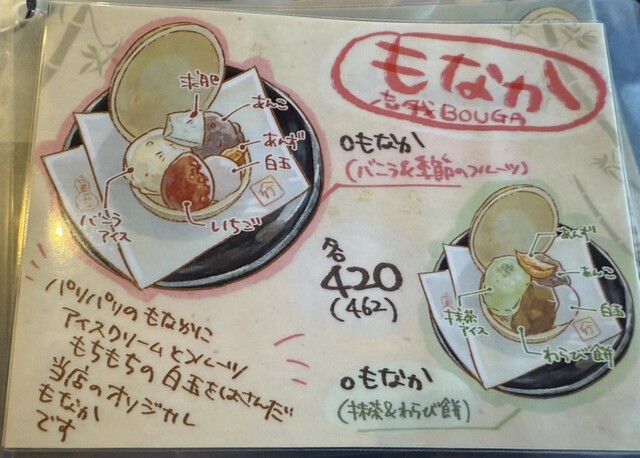 もなか
忘我BOUGA
求肥
あんこ
あんず
白玉
バニラ
アイス
いちご
竹
○もなか
(バニラ&季節のフルーツ)
各
420
(462)
あんず
あんこ
白玉
抹茶
アイス
わらび餅
竹
○もなか
(抹茶&わらび餅)
パリパリのもなかに
アイスクリームとフルーツ
もちもちの白玉をはさんだ
当店のオリジナル
もなか
です